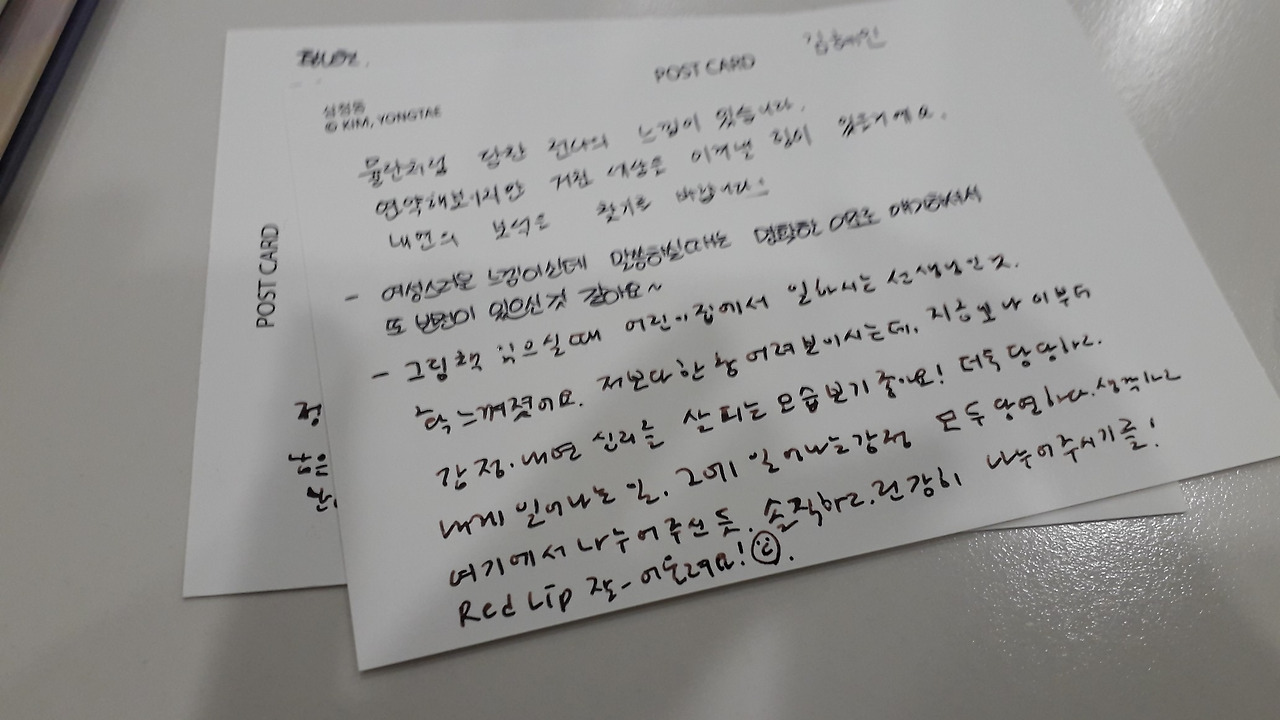 POST CARD
김혜인
심청동
© KIM, YONGTAE
당찬 느낌이 있습니다.
연약해보이지만 거친 세상을 이겨낼 힘이 있을거예요.
내면의 보석을 찾기를 바랍니다:
- 여성스러운 느낌이신데 말씀하실때는 명확한 어조로 얘기하셔서
또 반전이 있으신것 같아요~
- 그림책 읽으실때 어린이집에서 일하시는 선생님인줄.
확 느껴졌어요. 저보다 한창 어려보이시는데. 지금보다 이부터
감정.내면 심리를 살피는 모습 보기 좋아요! 더욱 당당하고.
내게 일어나는 일. 그에 일어나는 감정 모두 당연하다.생각하고
여기에서 나누어주신 듯. 솔직하고.건강히 나누어주시기를!
Red Lip 잘~ 어울려요!
POST CARD
정
남은